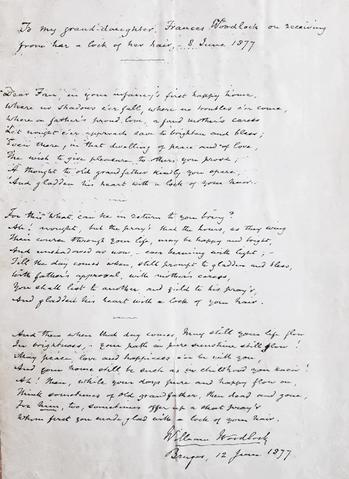 To my grand-daughter, Frances Woodlock on receiving
from her a lock of her hair, - 8 June 1877
Dear Fan, in your infancy's first happy home,
Where no shadows e'er fall, where no troubles e'er come,
Where a father's proud love, a fond mother's caress
Let nought e'er approach save to brighten and bless;
Even there, in that dwelling of peace and of love,
The wish to give pleasure to others you prove,
A thought to old grandfather kindly you spare,
And gladden his heart with a lock of your hair.
For this what can he in return to you bring?
Ah! nought, but the pray'r that the hours, as they wing
Their course through your life, may be happy and bright,
And unshadowed as now - ever beaming with light; -
Till the day comes when, still prompt to gladden and bless,
With father's approval, with mother's caress,
You shall list to another and yield to his pray'r,
And gladden his heart with a lock of your hair.
And then when that day comes, may still your life flow
In brightness, - your path in pure sunshine still glow!
May peace, love and happiness e'er be with you,
And your home still be such as in childhood you knew!
Ah! Then, while your days pure and happy flow on,
Think sometimes of old grandfather, then dead and gone,
For him, too, sometimes offer up a short pray'r
Whom first you made glad with a lock of your hair.
William Woodlock
Bruges, 12 June 1877